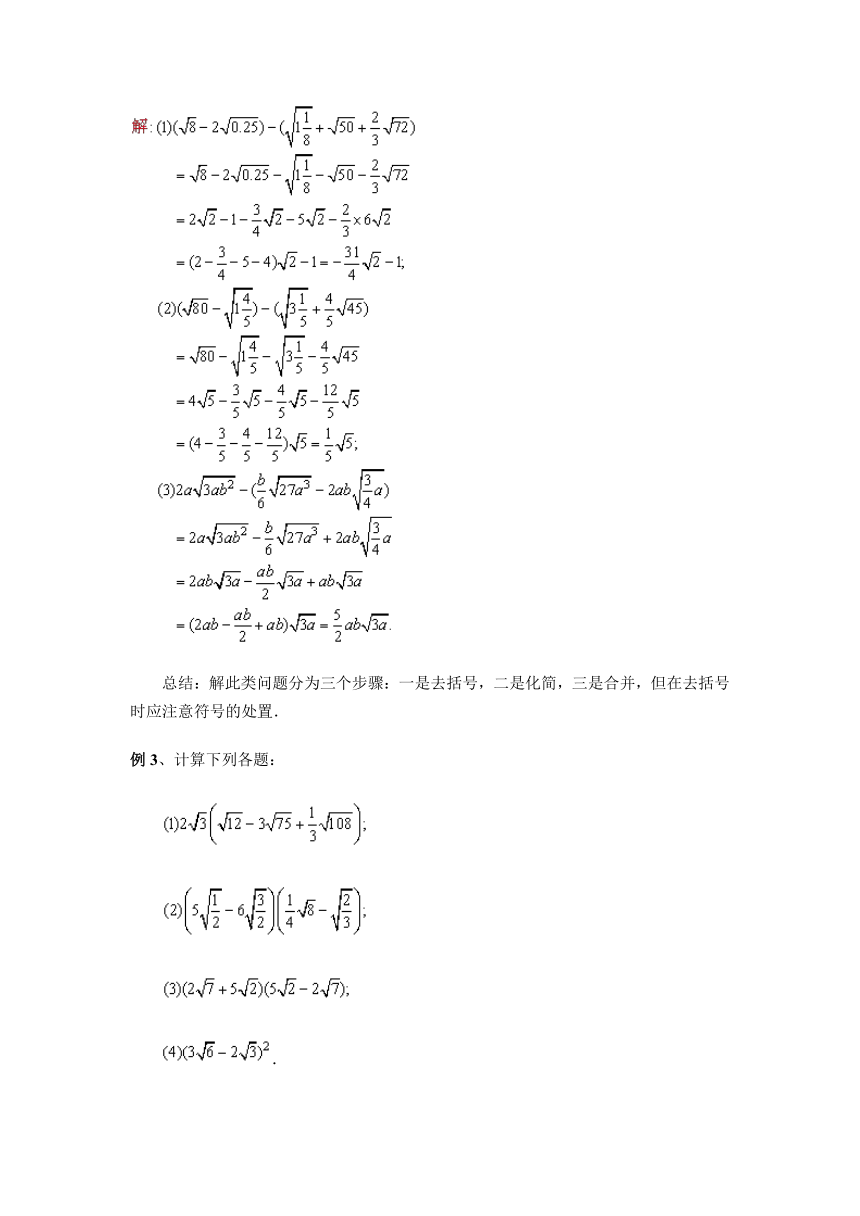 解:(1)(√8－2√0.25)－(√(1 1/8)＋√50＋2/3 √72)
＝√8－2√0.25－√(1 1/8)－√50－2/3 √72
＝2√2－1－3/4 √2－5√2－2/3×6√2
＝(2－3/4－5－4)√2－1＝－31/4 √2－1;
(2)(√80－√(1 4/5))－(√(3 1/5)＋4/5 √45)
＝√80－√(1 4/5)－√(3 1/5)－4/5 √45
＝4√5－3/5 √5－4/5 √5－12/5 √5
＝(4－3/5－4/5－12/5)√5＝1/5 √5;
(3)2a√(3ab²)－(b/6 √(27a³)－2ab√(3/4 a))
＝2a√(3ab²)－b/6 √(27a³)＋2ab√(3/4 a)
＝2ab√(3a)－ab/2 √(3a)＋ab√(3a)
＝(2ab－ab/2＋ab)√(3a)＝5/2 ab√(3a).
总结：解此类问题分为三个步骤：一是去括号，二是化简，三是合并，但在去括号
时应注意符号的处置．
例 3、计算下列各题：
(1)2√3(√12－3√75＋1/3 √108);
(2)(5√(1/2)－6√(3/2))(1/4 √8－√(2/3));
(3)(2√7＋5√2)(5√2－2√7);
(4)(3√6－2√3)²．